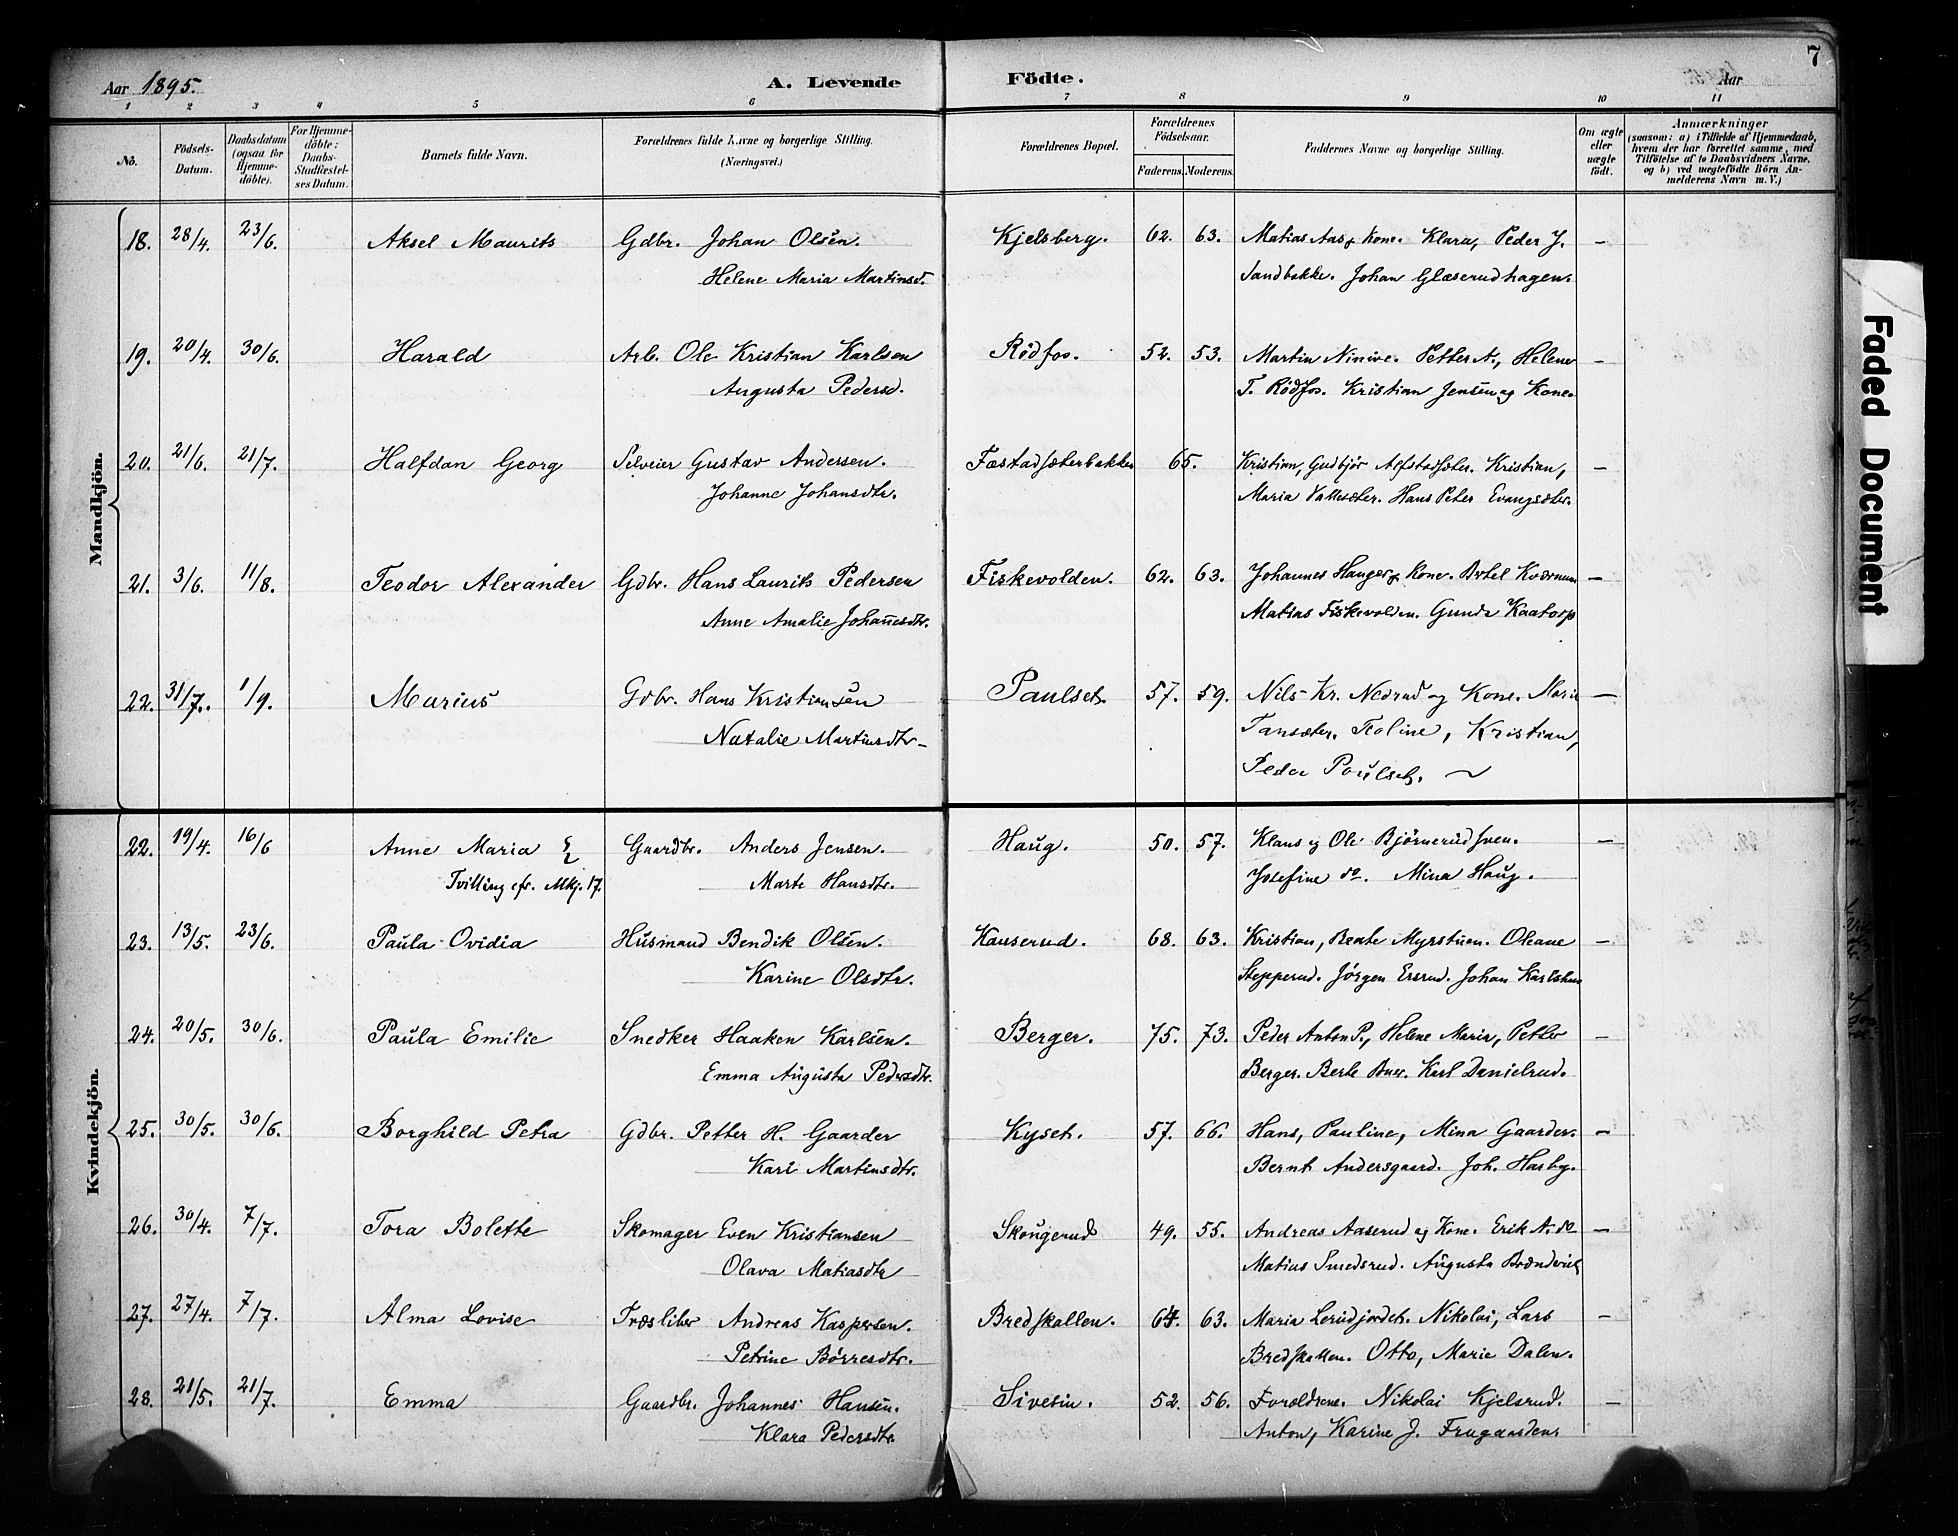 7
Aar 1895. A. Levende Födte. Aar
1 2 3 4 5 6 7 8 9 10 11
No.
Födsels-
Datum.
Daabsdatum
(ogsaa for
Hjemme-
döbte).
For Hjemme-
döbte:
Daabs-
Stadfæstel-
ses Datum.
Barnets fulde Navn.
Forældrenes fulde Navne og borgerlige Stilling.
(Næringsvei.)
Forældrenes Bopæl.
Forældrenes
Födselsaar.
Faderens. Moderens.
Faddernes Navne og borgerlige Stilling.
Om ægte
eller
uægte
født.
Anmærkninger
(saasom: a) i Tilfælde af Hjemmedaab,
hvem der har forrettet samme, med
Tilföielse af to Daabsvidners Navne,
og b) ved uægtefödte Börn An-
melderens Navn m. V.)
Mandkjön.
18. 28/4. 23/6. Aksel Maurits Gdbr. Johan Olsen. Kjelsberg. 62. 63. Matias Aas og Kone. Klara, Peder J. —
Helene Maria Martinsd. Sandbakke. Johan Glæserudhagen.
19. 20/4. 30/6. Harald Arb. Ole Kristian Karlsen Rödfos. 52. 53. Martin Ninive. Petter A., Helene —
Augusta Pedersd. T. Rödfos. Kristian Jensen og Kone.
20. 21/6. 21/7. Halfdan Georg Selveier Gustav Andersen. Fæstadsæterbakken 65. Kristian, Gudbjør Alfstadsæter. Kristian, —
Johanne Johansdtr. Maria Vallesæter. Hans Peter
21. 3/6. 11/8. Teodor Alexander Gdbr. Hans Laurits Pedersen Fiskevolden. 62. 63. Johannes Hauger og Kone. Bertel Kværnum —
Anne Amalie Johannesdtr. Matias Fiskevolden. Gunda Kaatorp
22. 31/7. 1/9. Marius Gdbr. Hans Kristiansen Paulset. 57. 59. Nils Kr. Nedrud og Kone. Marie —
Natalie Martinsdtr. Tansæter. Karoline, Kristian,
Peder Poulset.
Kvindekjön.
22. 19/4. 16/6 Anne Maria Gaardbr. Anders Jensen. Haug. 50. 57. Klaus og Ole Björnerudsven. —
Tvilling cfr. Mkj. 17. Marte Hansdtr. Josefine do. Mina Haug.
23. 13/5. 23/6. Paula Ovidia Husmand Bendik Olsen. Kauserud. 68. 63. Kristian, Beate Myrstuen. Oleane —
Karine Olsdtr. Stepperud. Jörgen Ersrud. Johan Karlshus
24. 20/5. 30/6. Paula Emilie Snedker Haaken Karlsen. Berger. 75. 73. Peder Anton P., Helene Maria, Petter —
Emma Augusta Pedersdtr. Berger. Berte Buer. Karl Danielrud.
25. 30/5. 30/6. Borghild Petra Gdbr. Petter H. Gaarder Kyset. 57. 66. Hans, Pauline, Mina Gaarder. —
Kari Martinsdtr. Bernt Andersgaard. Joh. Harby.
26. 30/4. 7/7. Tora Bolette Skomager Even Kristiansen Skougerud 49. 55. Andreas Aaserud og Kone. Erik A. do —
Olava Matiasdtr Matias Smedsrud. Augusta Brændvik
27. 27/4. 7/7. Alma Lovise Træsliber Andreas Kaspersen. Bredskallen. 64. 63. Maria Lerudjordet. Nikolai, Lars —
Petrine Börresdtr. Bredskallen. Otto, Marie Dalen.
28. 21/5. 21/7. Emma Gaardbr. Johannes Hansen. Sivesin. 52. 56. Forældrene. Nikolai Kjelsrud. —
Klara Pedersdtr Anton, Karine J. Frugaarden
Faded Document